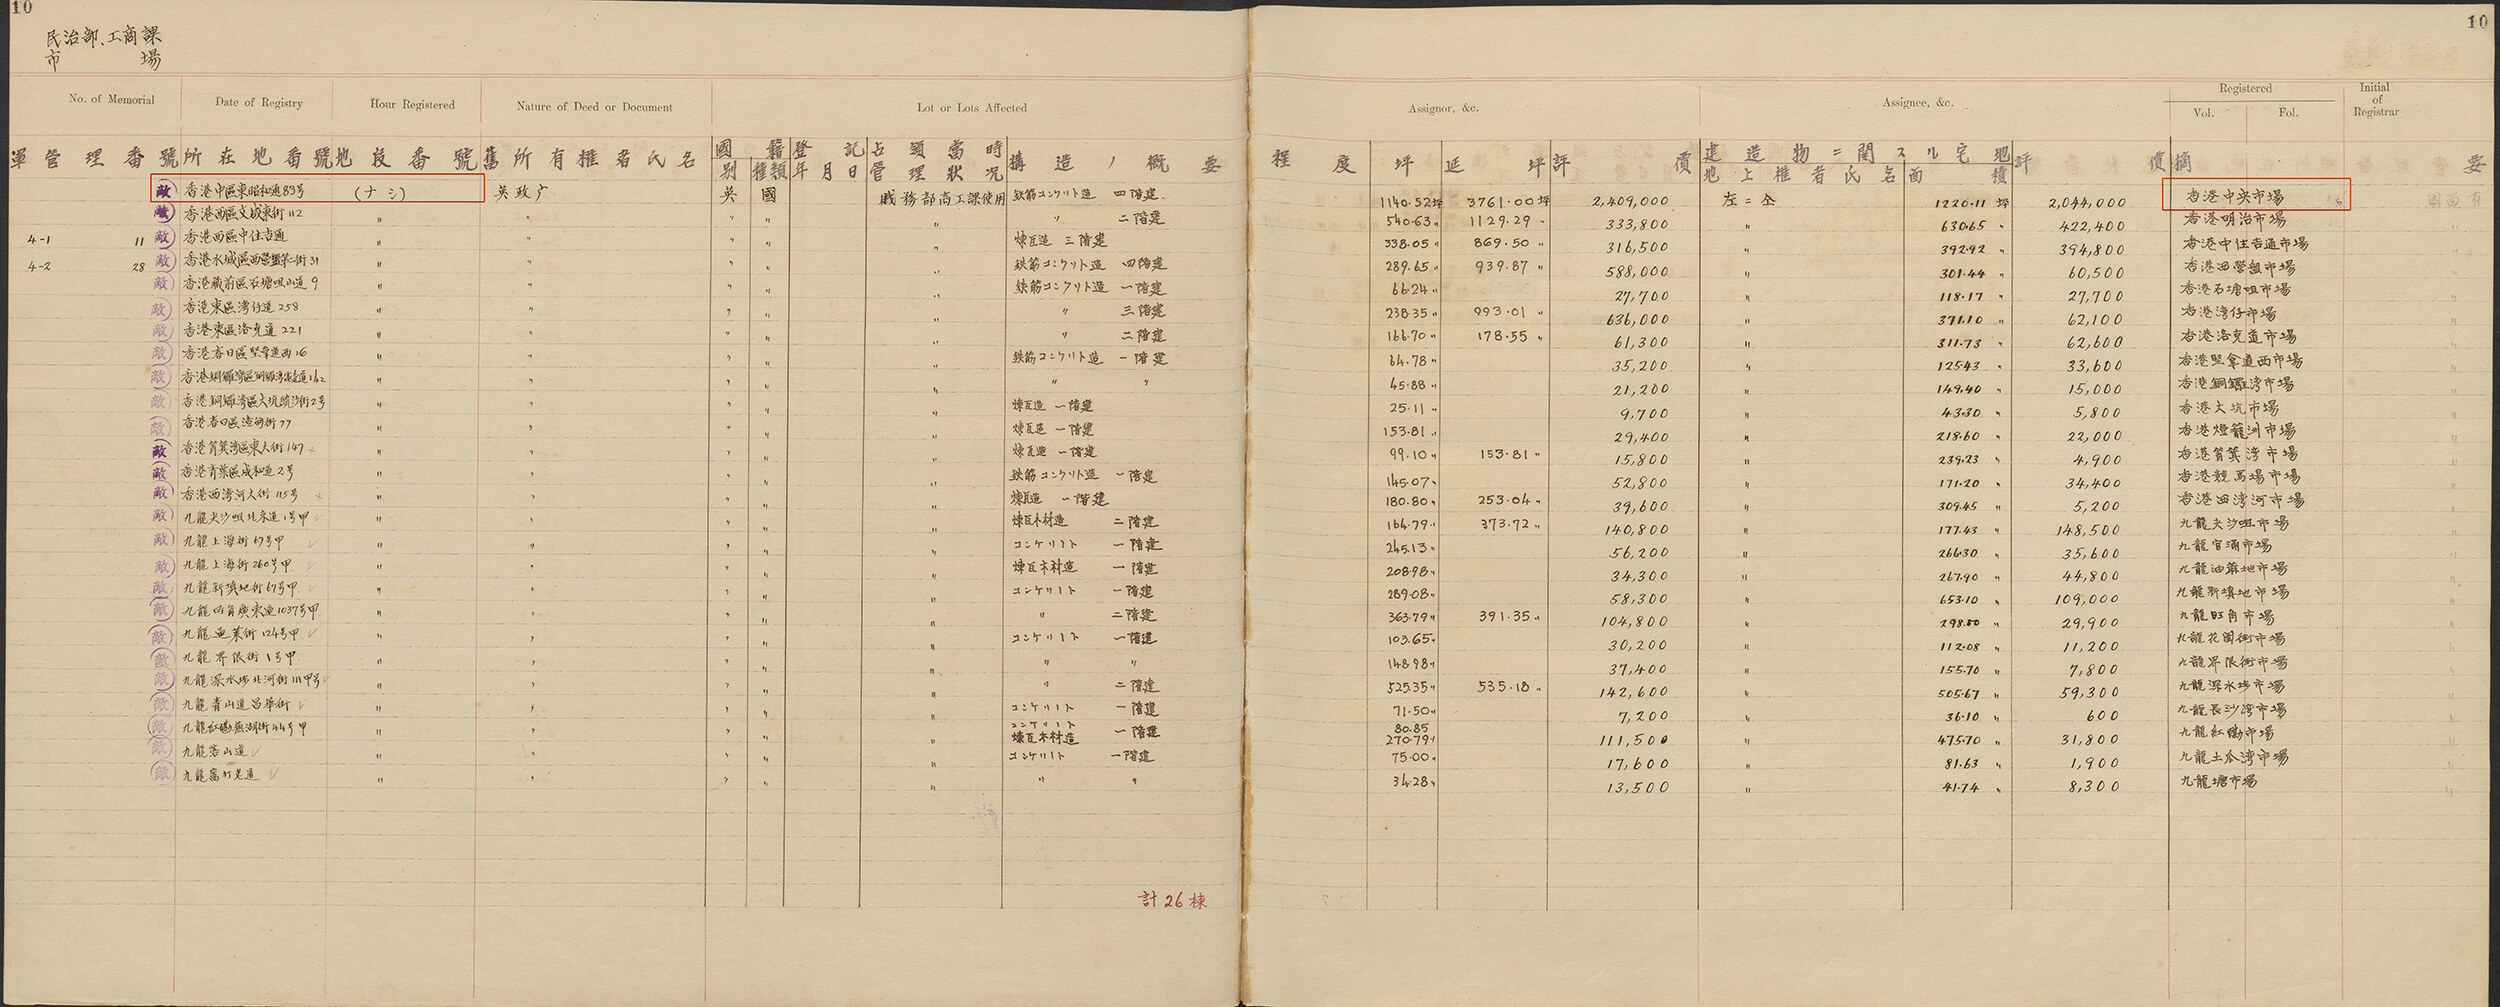 10
10
民治部、工商課
市 場
No. of Memorial Date of Registry Hour Registered Nature of Deed or Document Lot or Lots Affected Assignor, &c. Assignee, &c. Registered Vol. Fol. Initial of Registrar
軍管理番號 所在地番號 地段番號 舊所有權者氏名 國籍別 種類 登記年月日 占領當時管理狀況 構造ノ概要 程度 坪 延坪 評價 建造物ニ関スル宅地 地上權者氏名 面積 評價 摘要
敵 香港中區東昭和通83号 (ナシ) 英政庁 英 國 財務部商工課使用 鉄筋コンクリト造 四階建 1140.52坪 3761.00坪 2,409,000 左ニ仝 1220.11坪 2,044,000 香港中央市場
敵 香港西區文咸東街112 〃 〃 〃 〃 〃 〃 二階建 540.63〃 1129.29〃 333,800 〃 630.65〃 422,400 香港明治市場
4-1 11 敵 香港西區中住吉通 〃 〃 〃 〃 〃 煉瓦造 三階建 338.05〃 869.50〃 316,500 〃 392.92〃 394,800 香港中住吉通市場
4-2 28 敵 香港水城區西營盤第一街31 〃 〃 〃 〃 〃 鉄筋コンクリト造 四階建 289.65〃 939.87〃 588,000 〃 301.44〃 60,500 香港西營盤市場
敵 香港藏前區石塘咀山道9 〃 〃 〃 〃 〃 鉄筋コンクリト造 一階建 66.24〃 27,700 〃 118.17〃 27,700 香港石塘咀市場
敵 香港東區湾仔道258 〃 〃 〃 〃 〃 〃 三階建 238.35〃 993.01〃 636,000 〃 371.10〃 62,100 香港湾仔市場
敵 香港東區洛克道221 〃 〃 〃 〃 〃 〃 二階建 166.70〃 178.55〃 61,300 〃 311.73〃 62,600 香港洛克道市場
敵 香港春日區堅拿道西16 〃 〃 〃 〃 〃 鉄筋コンクリト造 一階建 64.78〃 35,200 〃 125.43〃 33,600 香港堅拿道西市場
敵 香港銅鑼湾區銅鑼湾道142 〃 〃 〃 〃 〃 〃 〃 45.88〃 21,200 〃 149.40〃 15,000 香港銅鑼湾市場
敵 香港銅鑼湾區大坑 街2号 〃 〃 〃 〃 〃 煉瓦造 一階建 25.11〃 9,700 〃 43.30〃 5,800 香港大坑市場
敵 香港春日區 街77 〃 〃 〃 〃 〃 煉瓦造 一階建 153.81〃 29,400 〃 218.60〃 22,000 香港燈籠洲市場
敵 香港筲箕湾區東大街147 〃 〃 〃 〃 〃 煉瓦造 一階建 99.10〃 153.81〃 15,800 〃 239.23〃 4,900 香港筲箕湾市場
敵 香港青葉區成和道2号 〃 〃 〃 〃 〃 鉄筋コンクリト造 一階建 145.07〃 52,800 〃 171.20〃 34,400 香港競馬場市場
敵 香港西湾河大街115号 〃 〃 〃 〃 〃 煉瓦造 一階建 180.80〃 253.04〃 39,600 〃 309.45〃 5,200 香港西湾河市場
敵 九龍尖沙咀北京道1号甲 〃 〃 〃 〃 〃 煉瓦木材造 二階建 166.79〃 373.72〃 140,800 〃 177.43〃 148,500 九龍尖沙咀市場
敵 九龍上海街67号甲 〃 〃 〃 〃 〃 コンケリート 一階建 245.13〃 56,200 〃 266.30〃 35,600 九龍官涌市場
敵 九龍上海街260号甲 〃 〃 〃 〃 〃 煉瓦木材造 一階建 208.98〃 34,300 〃 267.90〃 44,800 九龍油蔴地市場
敵 九龍新填地街67号甲 〃 〃 〃 〃 〃 コンケリート 一階建 289.08〃 58,300 〃 653.10〃 109,000 九龍新填地市場
敵 九龍旺角廣東道1037号甲 〃 〃 〃 〃 〃 〃 二階建 363.79〃 391.35〃 104,800 〃 298.80〃 29,900 九龍旺角市場
敵 九龍通菜街124号甲 〃 〃 〃 〃 〃 コンケリート 一階建 103.65〃 30,200 〃 112.08〃 11,200 九龍花園街市場
敵 九龍界限街1号甲 〃 〃 〃 〃 〃 〃 〃 148.98〃 37,400 〃 155.70〃 7,800 九龍界限街市場
敵 九龍深水埗北河街111甲号 〃 〃 〃 〃 〃 〃 二階建 525.35〃 535.18〃 142,600 〃 505.67〃 59,300 九龍深水埗市場
敵 九龍青山道昌華街 〃 〃 〃 〃 〃 コンケリート 一階建 71.50〃 7,200 〃 36.10〃 600 九龍長沙湾市場
敵 九龍紅磡蕪湖街44号甲 〃 〃 〃 〃 〃 コンケリート 煉瓦木材造 一階建 80.85 270.79〃 111,500 〃 475.70〃 31,800 九龍紅磡市場
敵 九龍落山道 〃 〃 〃 〃 〃 コンケリート 一階建 75.00〃 17,600 〃 81.63〃 1,900 九龍土瓜湾市場
敵 九龍富打老道 〃 〃 〃 〃 〃 〃 〃 34.28〃 13,500 〃 41.74〃 8,300 九龍塘市場
計26棟